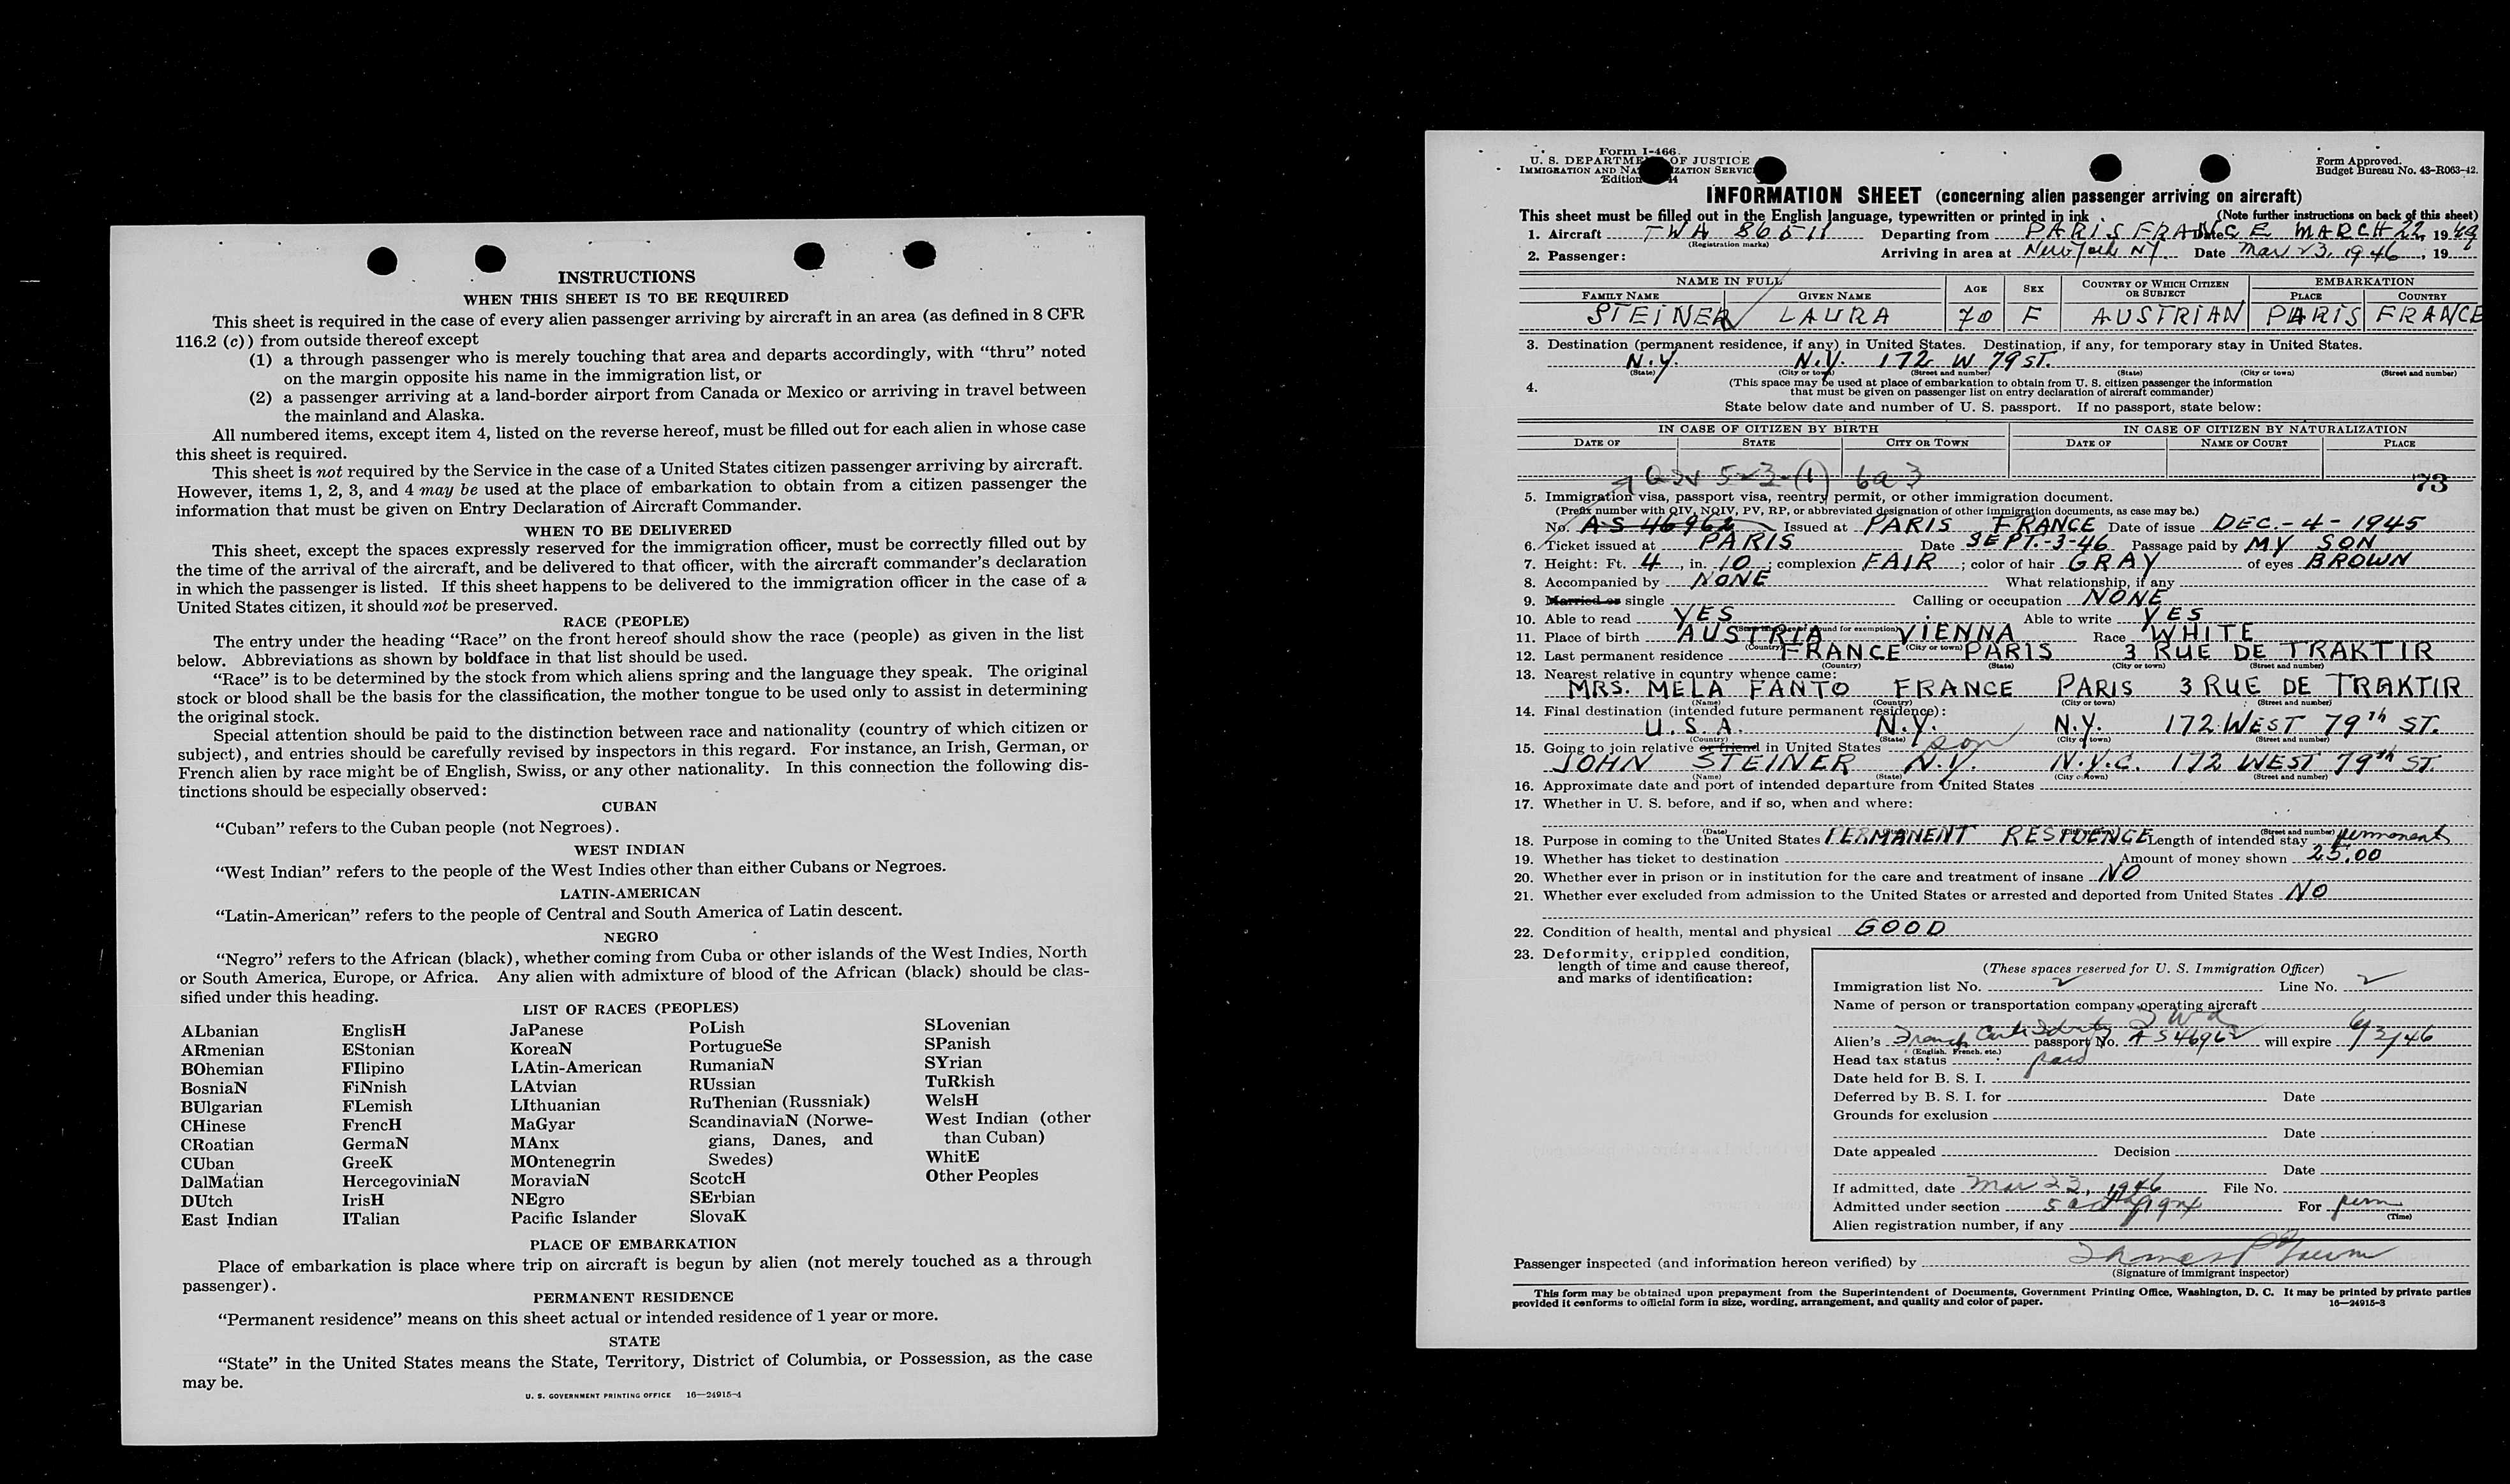 INSTRUCTIONS
WHEN THIS SHEET IS TO BE REQUIRED
This sheet is required in the case of every alien passenger arriving by aircraft in an area (as defined in 8 CFR
116.2 (c)) from outside thereof except
(1) a through passenger who is merely touching that area and departs accordingly, with “thru” noted
on the margin opposite his name in the immigration list, or
(2) a passenger arriving at a land-border airport from Canada or Mexico or arriving in travel between
the mainland and Alaska.
All numbered items, except item 4, listed on the reverse hereof, must be filled out for each alien in whose case
this sheet is required.
This sheet is not required by the Service in the case of a United States citizen passenger arriving by aircraft.
However, items 1, 2, 3, and 4 may be used at the place of embarkation to obtain from a citizen passenger the
information that must be given on Entry Declaration of Aircraft Commander.
WHEN TO BE DELIVERED
This sheet, except the spaces expressly reserved for the immigration officer, must be correctly filled out by
the time of the arrival of the aircraft, and be delivered to that officer, with the aircraft commander’s declaration
in which the passenger is listed. If this sheet happens to be delivered to the immigration officer in the case of a
United States citizen, it should not be preserved.
RACE (PEOPLE)
The entry under the heading “Race” on the front hereof should show the race (people) as given in the list
below. Abbreviations as shown by boldface in that list should be used.
“Race” is to be determined by the stock from which aliens spring and the language they speak. The original
stock or blood shall be the basis for the classification, the mother tongue to be used only to assist in determining
the original stock.
Special attention should be paid to the distinction between race and nationality (country of which citizen or
subject), and entries should be carefully revised by inspectors in this regard. For instance, an Irish, German, or
French alien by race might be of English, Swiss, or any other nationality. In this connection the following dis-
tinctions should be especially observed:
CUBAN
“Cuban” refers to the Cuban people (not Negroes).
WEST INDIAN
“West Indian” refers to the people of the West Indies other than either Cubans or Negroes.
LATIN-AMERICAN
“Latin-American” refers to the people of Central and South America of Latin descent.
NEGRO
“Negro” refers to the African (black), whether coming from Cuba or other islands of the West Indies, North
or South America, Europe, or Africa. Any alien with admixture of blood of the African (black) should be clas-
sified under this heading.
LIST OF RACES (PEOPLES)
ALbanian EnglisH JaPanese PoLish SLovenian
ARmenian EStonian KoreaN PortugueSe SPanish
BOhemian FIlipino LAtin-American RumaniaN SYrian
BosniaN FiNnish LAtvian RUssian TuRkish
BUlgarian FLemish LIthuanian RuThenian (Russniak) WelsH
CHinese FrencH MaGyar ScandinaviaN (Norwe- West Indian (other
CRoatian GermaN MAnx gians, Danes, and than Cuban)
CUban GreeK MOntenegrin Swedes) WhitE
DalMatian HercegoviniaN MoraviaN ScotcH Other Peoples
DUtch IrisH NEgro SErbian
East Indian ITalian Pacific Islander SlovaK
PLACE OF EMBARKATION
Place of embarkation is place where trip on aircraft is begun by alien (not merely touched as a through
passenger).
PERMANENT RESIDENCE
“Permanent residence” means on this sheet actual or intended residence of 1 year or more.
STATE
“State” in the United States means the State, Territory, District of Columbia, or Possession, as the case
may be.
U. S. GOVERNMENT PRINTING OFFICE 16—24915-4
Form I-466
U. S. DEPARTME OF JUSTICE
IMMIGRATION AND NA ZATION SERVIC
Edition
Form Approved.
Budget Bureau No. 43-R063-42.
INFORMATION SHEET (concerning alien passenger arriving on aircraft)
This sheet must be filled out in the English language, typewritten or printed in ink. (Note further instructions on back of this sheet)
1. Aircraft TWA 86511 Departing from PARIS FRANCE Date MARCH 22, 19
(Registration marks)
2. Passenger: Arriving in area at New York NY Date Mar 23, 1946, 19
NAME IN FULL AGE SEX COUNTRY OF WHICH CITIZEN OR SUBJECT EMBARKATION
FAMILY NAME GIVEN NAME PLACE COUNTRY
STEINER LAURA 70 F AUSTRIAN PARIS FRANCE
3. Destination (permanent residence, if any) in United States. Destination, if any, for temporary stay in United States.
N.Y. N.Y. 172 W 79 ST.
(State) (City or town) (Street and number) (State) (City or town) (Street and number)
4. (This space may be used at place of embarkation to obtain from U. S. citizen passenger the information
that must be given on passenger list on entry declaration of aircraft commander)
State below date and number of U. S. passport. If no passport, state below:
IN CASE OF CITIZEN BY BIRTH IN CASE OF CITIZEN BY NATURALIZATION
DATE OF STATE CITY OR TOWN DATE OF NAME OF COURT PLACE
523-(1) 6a3 73
5. Immigration visa, passport visa, reentry permit, or other immigration document.
(Prefix number with QIV, NQIV, PV, RP, or abbreviated designation of other immigration documents, as case may be.)
No. AS 46962 Issued at PARIS FRANCE Date of issue DEC.-4-1945
6. Ticket issued at PARIS Date SEPT.-3-46 Passage paid by MY SON
7. Height: Ft. 4, in. 10; complexion FAIR; color of hair GRAY of eyes BROWN
8. Accompanied by NONE What relationship, if any
9. Married or single Calling or occupation NONE
10. Able to read YES Able to write YES
11. Place of birth AUSTRIA VIENNA Race WHITE
(Country) (City or town)
12. Last permanent residence FRANCE PARIS 3 RUE DE TRAKTIR
(Country) (State) (City or town) (Street and number)
13. Nearest relative in country whence came:
MRS. MELA FANTO FRANCE PARIS 3 RUE DE TRAKTIR
(Name) (Country) (City or town) (Street and number)
14. Final destination (intended future permanent residence):
U.S.A. N.Y. N.Y. 172 WEST 79th ST.
(Country) (State) (City or town) (Street and number)
15. Going to join relative or friend in United States son
JOHN STEINER N.Y. N.Y.C. 172 WEST 79th ST.
(Name) (State) (City or town) (Street and number)
16. Approximate date and port of intended departure from United States
17. Whether in U. S. before, and if so, when and where:
(Date) (State) (City or town) (Street and number)
18. Purpose in coming to the United States PERMANENT RESIDENCE Length of intended stay permanent
19. Whether has ticket to destination Amount of money shown 25.00
20. Whether ever in prison or in institution for the care and treatment of insane NO
21. Whether ever excluded from admission to the United States or arrested and deported from United States NO
22. Condition of health, mental and physical GOOD
23. Deformity, crippled condition,
length of time and cause thereof,
and marks of identification:
(These spaces reserved for U. S. Immigration Officer)
Immigration list No. 2 Line No. 2
Name of person or transportation company operating aircraft
TWA
Alien's French Carte Identity passport No. AS46962 will expire 6/3/46
(English, French, etc.)
Head tax status paid
Date held for B. S. I.
Deferred by B. S. I. for Date
Grounds for exclusion
Date
Date appealed Decision
Date
If admitted, date Mar 23, 1946 File No.
Admitted under section For perm
(Time)
Alien registration number, if any
Passenger inspected (and information hereon verified) by
(Signature of immigrant inspector)
This form may be obtained upon prepayment from the Superintendent of Documents, Government Printing Office, Washington, D. C. It may be printed by private parties
provided it conforms to official form in size, wording, arrangement, and quality and color of paper. 16—24915-3